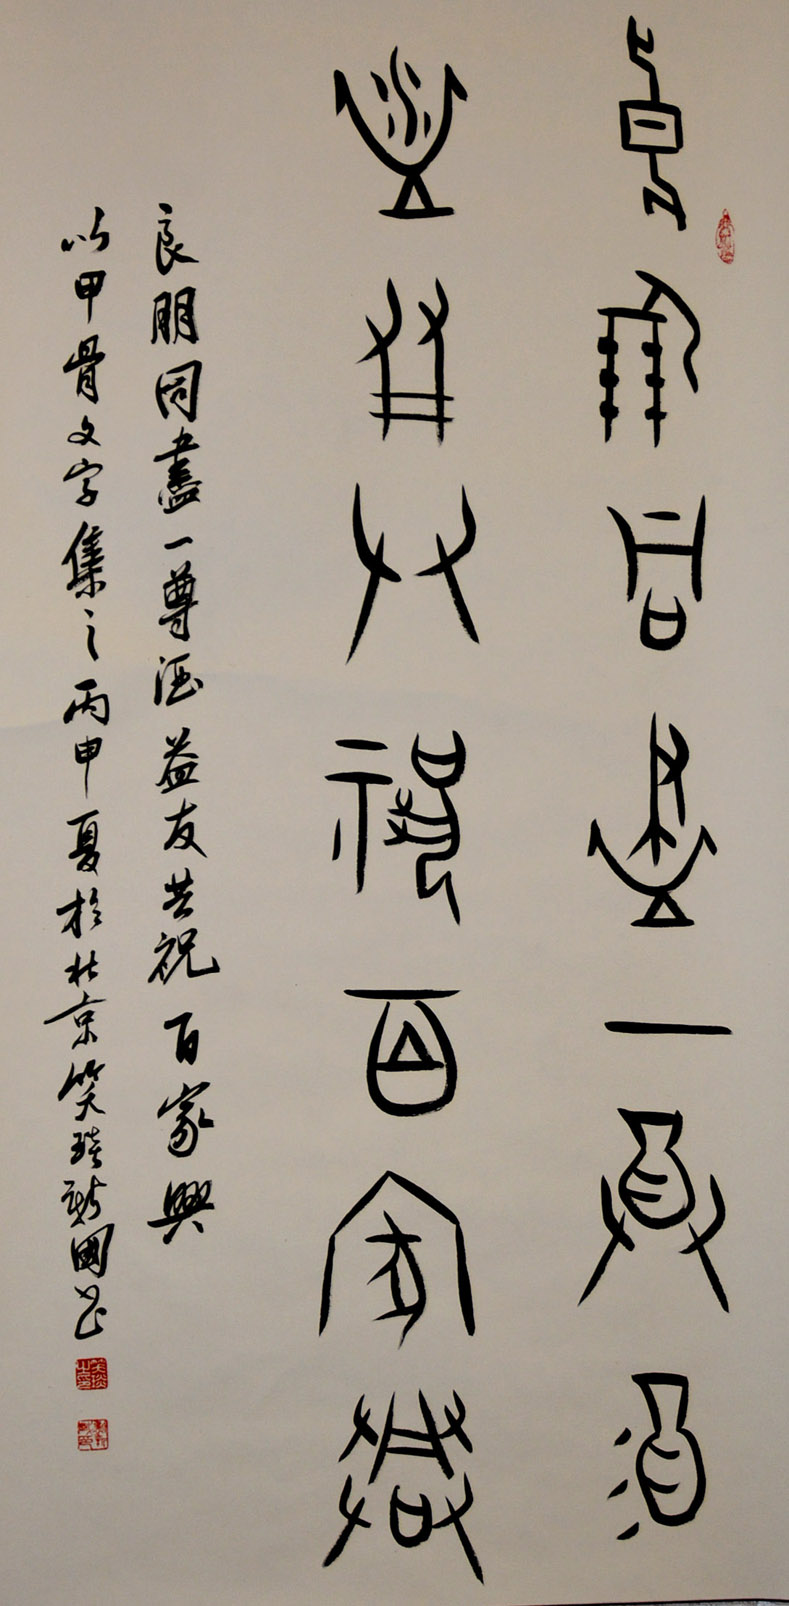 良朋同盡一尊酒
益友共祝百家興
良朋同盡一尊酒益友共祝百家興
以甲骨文字集之丙申夏於北京笑琰新國書